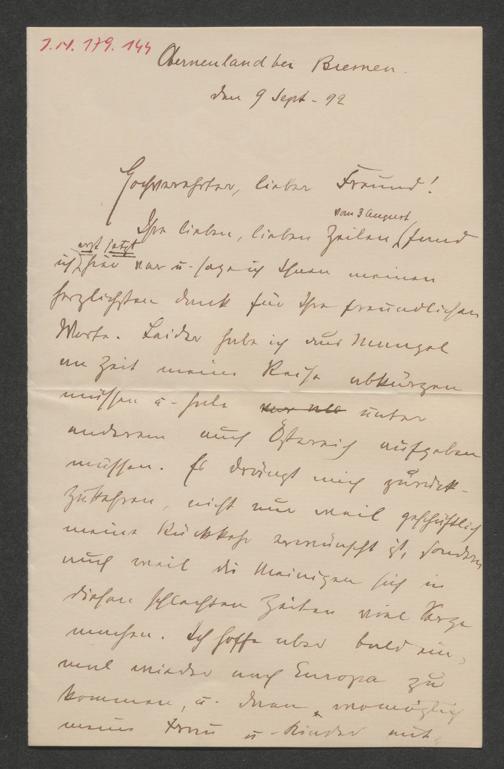 I.N. 179.144
Obernenland bei Bremen.
den 9 Sept - 92
Hochverehrter, lieber Freund!
von 3 August
Ihre lieben, lieben Zeilen, fand
erst jetzt
ich hier vor u - sage ich Ihnen meinen
herzlichsten Dank für Ihre freundlichen
Worte. Leider habe ich aus Mangel
an Zeit meine Reise abkürzen
müssen u - habe unter
anderem auch Östereich aufgeben
müssen. Es drängt mich zurück-
zukehren, nicht nur weil geschäftlich
meine Rückkehr erwünscht ist, sondern
auch weil die Meinigen sich in
diesen schlechten Zeiten viel Sorge
machen. Ich hoffe aber bald ein-
mal wieder nach Europa zu
kommen, u - dann womöglich
meine Frau u - Kinder mit